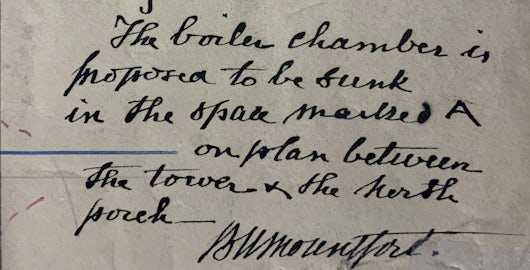 The boiler chamber is
proposed to be sunk
in the space marked A
on plan between
the tower & the North
porch
BWMountfort.